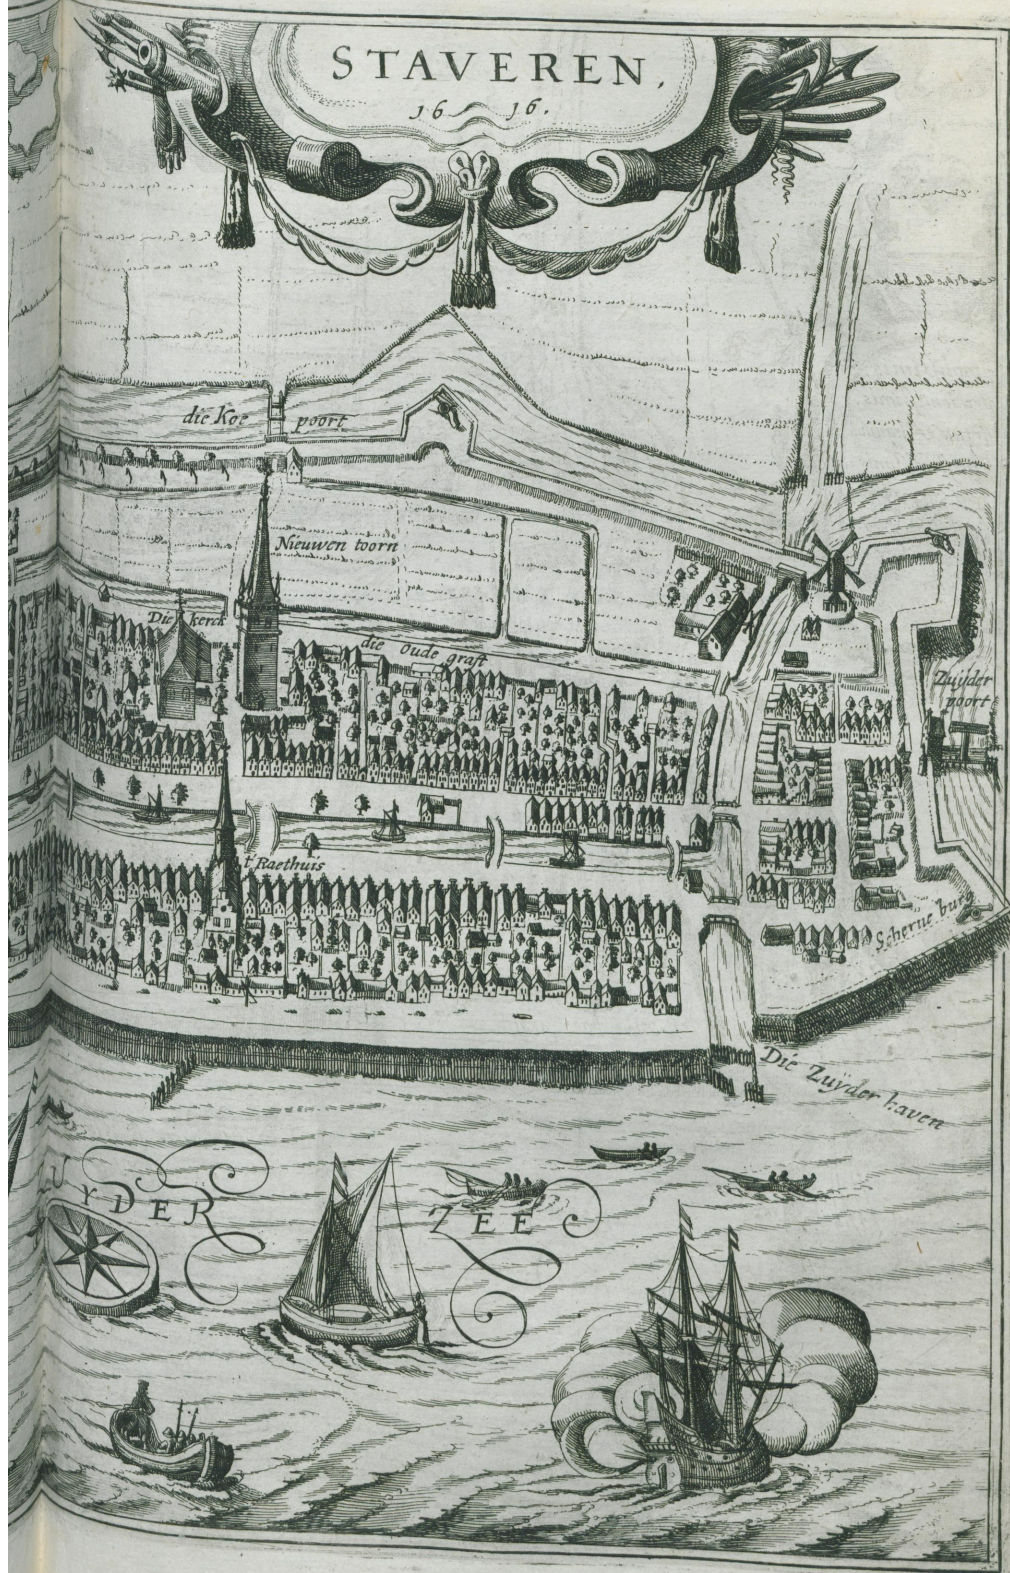 STAVEREN,
16 16.
die Koe poort
Nieuwen toorn
Die kerck
die oude graft
Zuyder
poort
t'Raethuis
Scherne burg
Die Zuÿder haven
UYDER ZEE